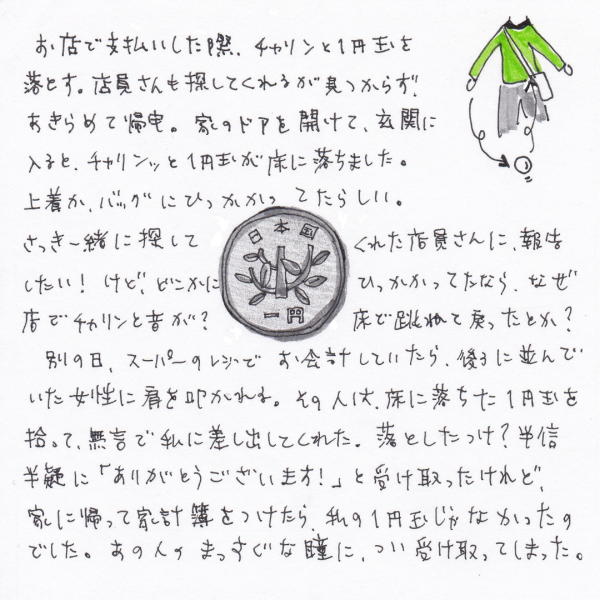 お店で支払いした際、チャリンと1円玉を
落とす。店員さんも探してくれるが見つからず、
あきらめて帰宅。家のドアを開けて、玄関に
入ると、チャリンッと1円玉が床に落ちました。
上着か、バッグにひっかかってたらしい。
さっき一緒に探してくれた店員さんに、報告
したい!けど、どこかにひっかかってたなら、なぜ
店でチャリンと音が?床で跳ねて戻ったとか?
日本国
一円
別の日、スーパーのレジでお会計していたら、後ろに並んで
いた女性に肩を叩かれる。その人は、床に落ちた1円玉を
拾って、無言で私に差し出してくれた。落としたっけ?半信
半疑に「ありがとうございます!」と受け取ったけれど、
家に帰って家計簿をつけたら、私の1円玉じゃなかったの
でした。あの人のまっすぐな瞳に、つい受け取ってしまった。